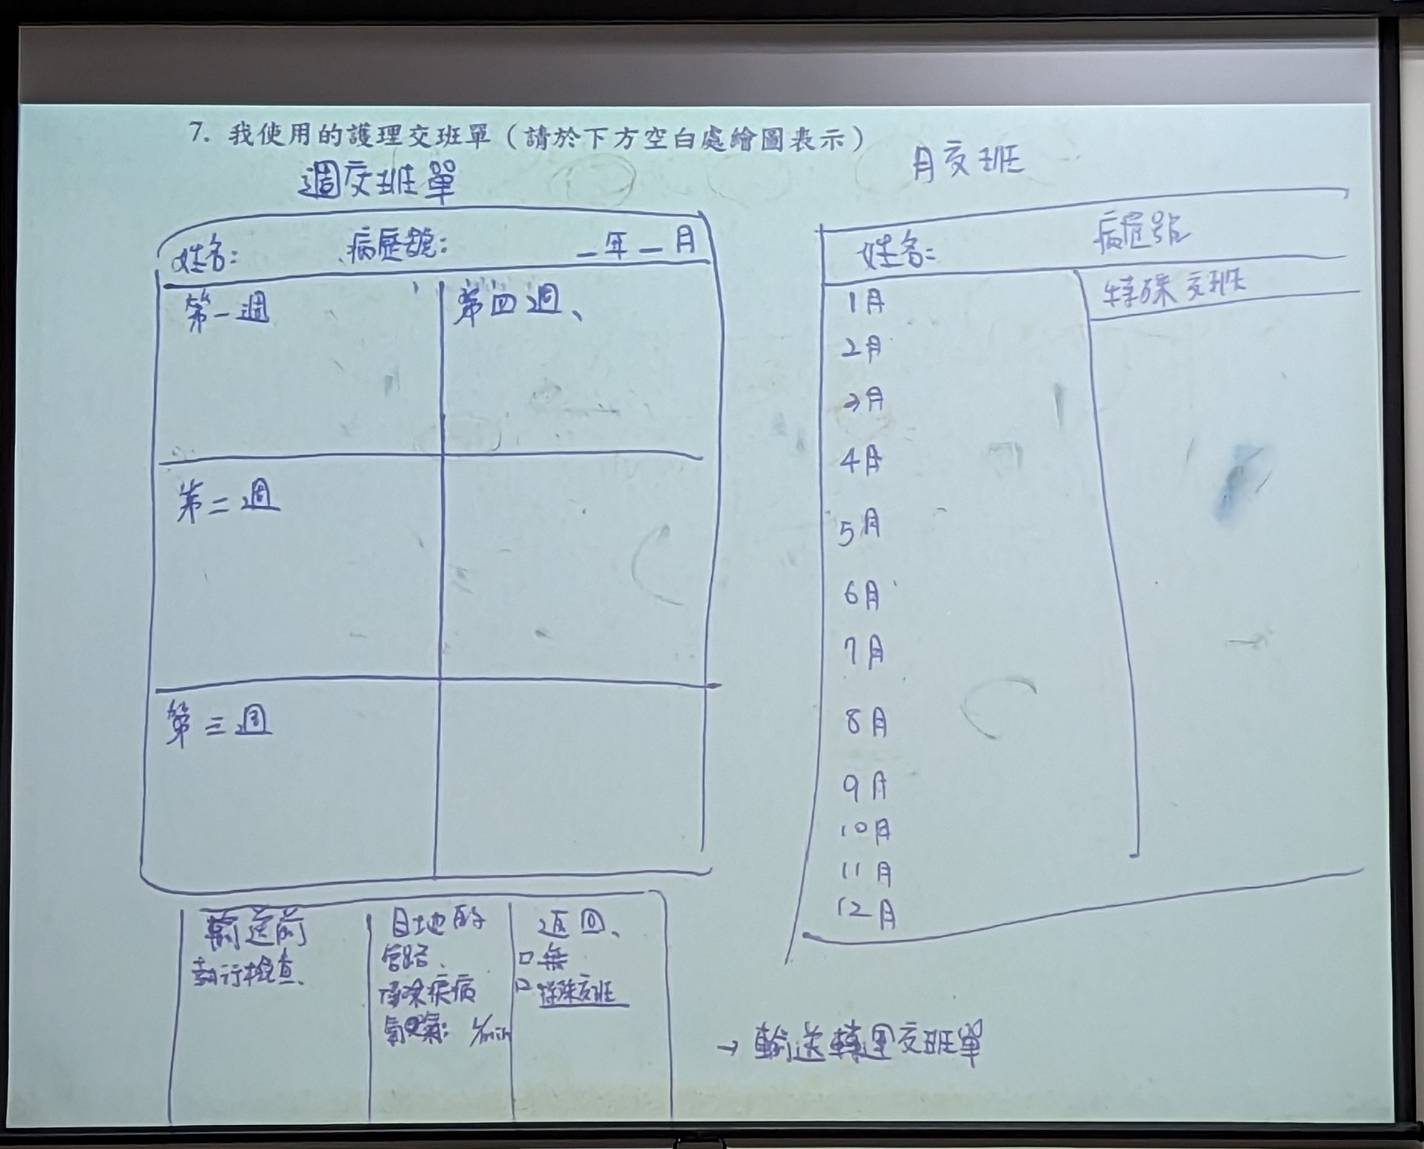 7. 我使用的護理交班單（請於下方空白處繪圖表示）
週交班單
姓名：
病歷號：
_年_月
第一週
第四週、
第二週
第三週
月交班
姓名：
病歷號
特殊交班
1月
2月
3月
4月
5月
6月
7月
8月
9月
10月
11月
12月
輸送前
執行檢查、
目地的
管路、
疾病
氧氣：
L/min
返回、
□無
□特殊交班
→輸送轉運交班單